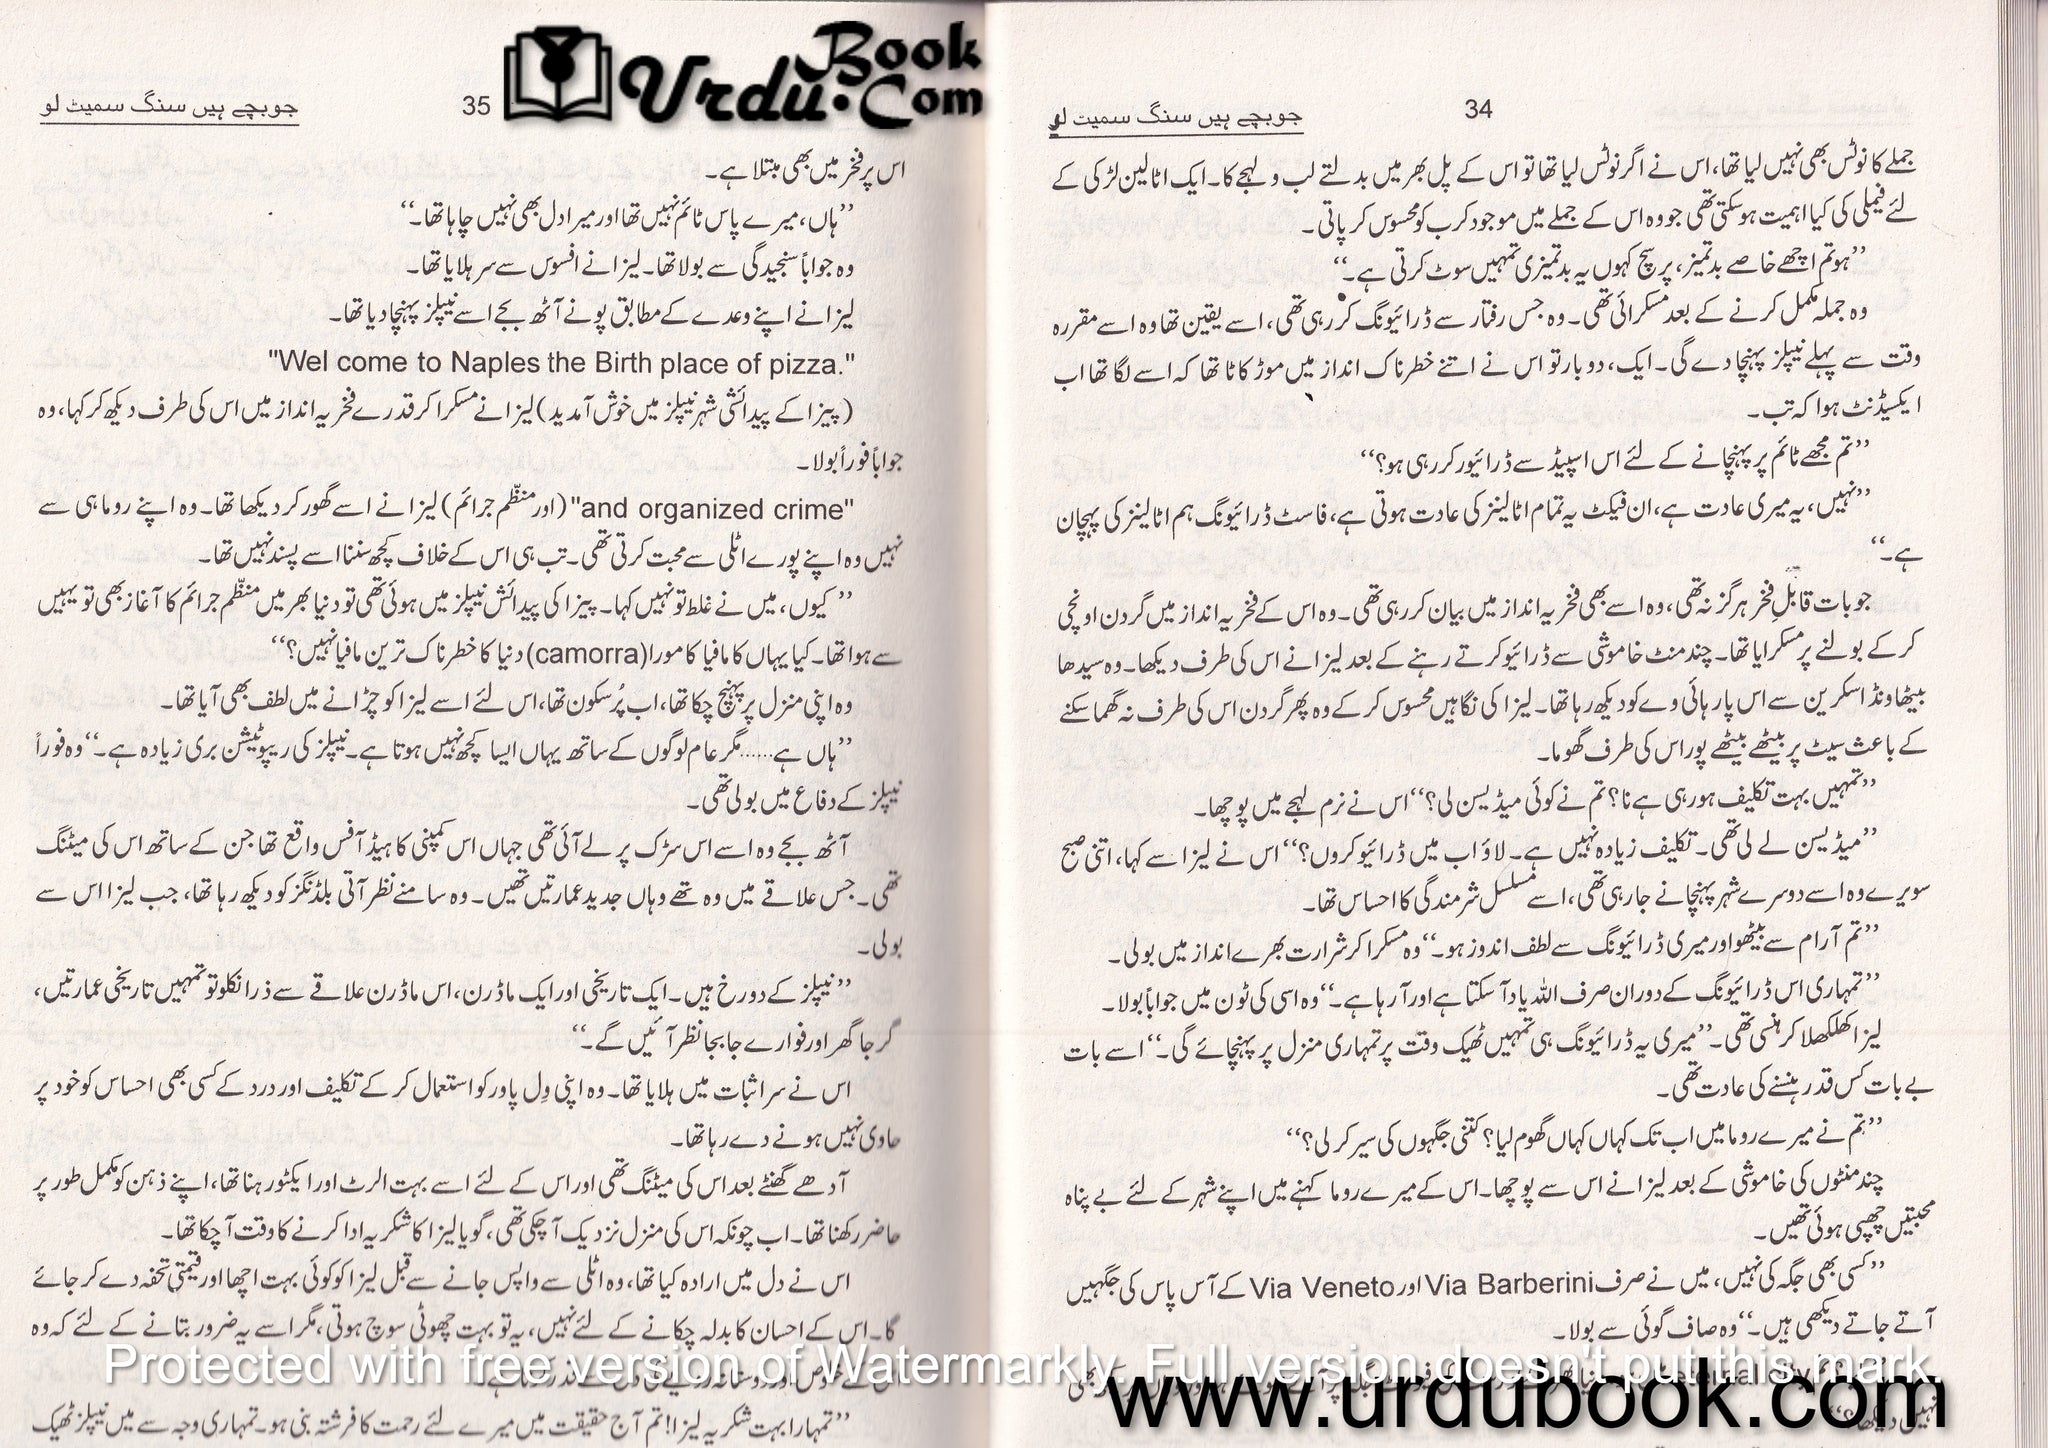 34
جو بچے ہیں سنگ سمیٹ لو
جملے کا نوٹس بھی نہیں لیا تھا، اس نے اگر نوٹس لیا تھا تو اس کے پل بھر میں بدلتے لب و لہجے کا۔ ایک اٹالین لڑکی کے
لئے فیملی کی کیا اہمیت ہوسکتی تھی جو وہ اس کے جملے میں موجود کرب کو محسوس کر پاتی۔
’’ہو تم اچھے خاصے بدتمیز، پر سچ کہوں یہ بدتمیزی تمہیں سوٹ کرتی ہے۔‘‘
وہ جملہ مکمل کرنے کے بعد مسکرائی تھی۔ وہ جس رفتار سے ڈرائیونگ کررہی تھی، اسے یقین تھا وہ اسے مقررہ
وقت سے پہلے نیپلز پہنچا دے گی۔ ایک، دو بار تو اس نے اتنے خطرناک انداز میں موڑ کاٹا تھا کہ اسے لگا تھا اب
ایکسیڈنٹ ہوا کہ تب۔
’’تم مجھے ٹائم پر پہنچانے کے لئے اس اسپیڈ سے ڈرائیور کررہی ہو؟‘‘
’’نہیں، یہ میری عادت ہے، ان فیکٹ یہ تمام اٹالینز کی عادت ہوتی ہے، فاسٹ ڈرائیونگ ہم اٹالینز کی پہچان
ہے۔‘‘
جو بات قابلِ فخر ہرگز نہ تھی، وہ اسے بھی فخریہ انداز میں بیان کررہی تھی۔ وہ اس کے فخریہ انداز میں گردن اونچی
کرکے بولنے پر مسکرایا تھا۔ چند منٹ خاموشی سے ڈرائیو کرتے رہنے کے بعد لیزا نے اس کی طرف دیکھا۔ وہ سیدھا
بیٹھا ونڈ اسکرین سے اس پار ہائی وے کو دیکھ رہا تھا۔ لیزا کی نگاہیں محسوس کرکے وہ پھر گردن اس کی طرف نہ گھما سکنے
کے باعث سیٹ پر بیٹھے بیٹھے پورا اس کی طرف گھوما۔
’’تمہیں بہت تکلیف ہورہی ہے نا؟ تم نے کوئی میڈیسن لی؟‘‘ اس نے نرم لہجے میں پوچھا۔
’’میڈیسن لے لی تھی۔ تکلیف زیادہ نہیں ہے۔ لاؤ اب میں ڈرائیو کروں؟‘‘ اس نے لیزا سے کہا، اتنی صبح
سویرے وہ اسے دوسرے شہر پہنچانے جارہی تھی، اسے مسلسل شرمندگی کا احساس تھا۔
’’تم آرام سے بیٹھو اور میری ڈرائیونگ سے لطف اندوز ہو۔‘‘ وہ مسکرا کر شرارت بھرے انداز میں بولی۔
’’تمہاری اس ڈرائیونگ کے دوران صرف اللہ یاد آسکتا ہے اور آرہا ہے۔‘‘ وہ اسی کی ٹون میں جواباً بولا۔
لیزا کھلکھلا کر ہنسی تھی۔ ’’میری یہ ڈرائیونگ ہی تمہیں ٹھیک وقت پر تمہاری منزل پر پہنچائے گی۔‘‘ اسے بات
بے بات کس قدر ہنسنے کی عادت تھی۔
’’تم نے میرے روما میں اب تک کہاں کہاں گھوم لیا؟ کتنی جگہوں کی سیر کرلی؟‘‘
چند منٹوں کی خاموشی کے بعد لیزا نے اس سے پوچھا۔ اس کے میرے روما کہنے میں اپنے شہر کے لئے بے پناہ
محبتیں چھپی ہوئی تھیں۔
’’کسی بھی جگہ کی نہیں، میں نے صرف Via Barberini اور Via Veneto کے آس پاس کی جگہیں
آتے جاتے دیکھی ہیں۔‘‘ وہ صاف گوئی سے بولا۔
www.urdubook.com
35
جو بچے ہیں سنگ سمیٹ لو
Urdu Book.Com
اس پر فخر میں بھی مبتلا ہے۔
’’ہاں، میرے پاس ٹائم نہیں تھا اور میرا دل بھی نہیں چاہا تھا۔‘‘
وہ جواباً سنجیدگی سے بولا تھا۔ لیزا نے افسوس سے سر ہلایا تھا۔
لیزا نے اپنے وعدے کے مطابق پونے آٹھ بجے اسے نیپلز پہنچا دیا تھا۔
"Wel come to Naples the Birth place of pizza."
(پیزا کے پیدائشی شہر نیپلز میں خوش آمدید) لیزا نے مسکرا کر قدرے فخریہ انداز میں اس کی طرف دیکھ کر کہا، وہ
جواباً فوراً بولا۔
"and organized crime" (اور منظّم جرائم) لیزا نے اسے گھور کر دیکھا تھا۔ وہ اپنے روما ہی سے
نہیں وہ اپنے پورے اٹلی سے محبت کرتی تھی۔ تب ہی اس کے خلاف کچھ سننا اسے پسند نہیں تھا۔
’’کیوں، میں نے غلط تو نہیں کہا۔ پیزا کی پیدائش نیپلز میں ہوئی تھی تو دنیا بھر میں منظّم جرائم کا آغاز بھی تو یہیں
سے ہوا تھا۔ کیا یہاں کا مافیا کامورا (camorra) دنیا کا خطرناک ترین مافیا نہیں؟‘‘
وہ اپنی منزل پر پہنچ چکا تھا، اب پُرسکون تھا، اس لئے اسے لیزا کو چڑانے میں لطف بھی آیا تھا۔
’’ہاں ہے...... مگر عام لوگوں کے ساتھ یہاں ایسا کچھ نہیں ہوتا ہے۔ نیپلز کی ریپوٹیشن بری زیادہ ہے۔‘‘ وہ فوراً
نیپلز کے دفاع میں بولی تھی۔
آٹھ بجے وہ اسے اس سڑک پر لے آئی تھی جہاں اس کمپنی کا ہیڈ آفس واقع تھا جن کے ساتھ اس کی میٹنگ
تھی۔ جس علاقے میں وہ تھے وہاں جدید عمارتیں تھیں۔ وہ سامنے نظر آتی بلڈنگز کو دیکھ رہا تھا، جب لیزا اس سے
بولی۔
’’نیپلز کے دو رخ ہیں۔ ایک تاریخی اور ایک ماڈرن، اس ماڈرن علاقے سے ذرا نکلو تو تمہیں تاریخی عمارتیں،
گرجا گھر اور فوارے جا بجا نظر آئیں گے۔‘‘
اس نے سر اثبات میں ہلایا تھا۔ وہ اپنی وِل پاور کو استعمال کرکے تکلیف اور درد کے کسی بھی احساس کو خود پر
حاوی نہیں ہونے دے رہا تھا۔
آدھے گھنٹے بعد اس کی میٹنگ تھی اور اس کے لئے اسے بہت الرٹ اور ایکٹو رہنا تھا، اپنے ذہن کو مکمل طور پر
حاضر رکھنا تھا۔ اب چونکہ اس کی منزل نزدیک آچکی تھی، گویا لیزا کا شکریہ ادا کرنے کا وقت آچکا تھا۔
اس نے دل میں ارادہ کیا تھا، وہ اٹلی سے واپس جانے سے قبل لیزا کو کوئی بہت اچھا اور قیمتی تحفہ دے کر جائے
گا۔ اس کے احسان کا بدلہ چکانے کے لئے نہیں، یہ تو بہت چھوٹی سوچ ہوتی، مگر اسے یہ ضرور بتانے کے لئے کہ وہ
’’تمہارا بہت شکریہ لیزا! تم آج حقیقت میں میرے لئے رحمت کا فرشتہ بنی ہو۔ تمہاری وجہ سے میں نیپلز ٹھیک
Protected with free version of Watermarkly. Full version doesn't put this mark.